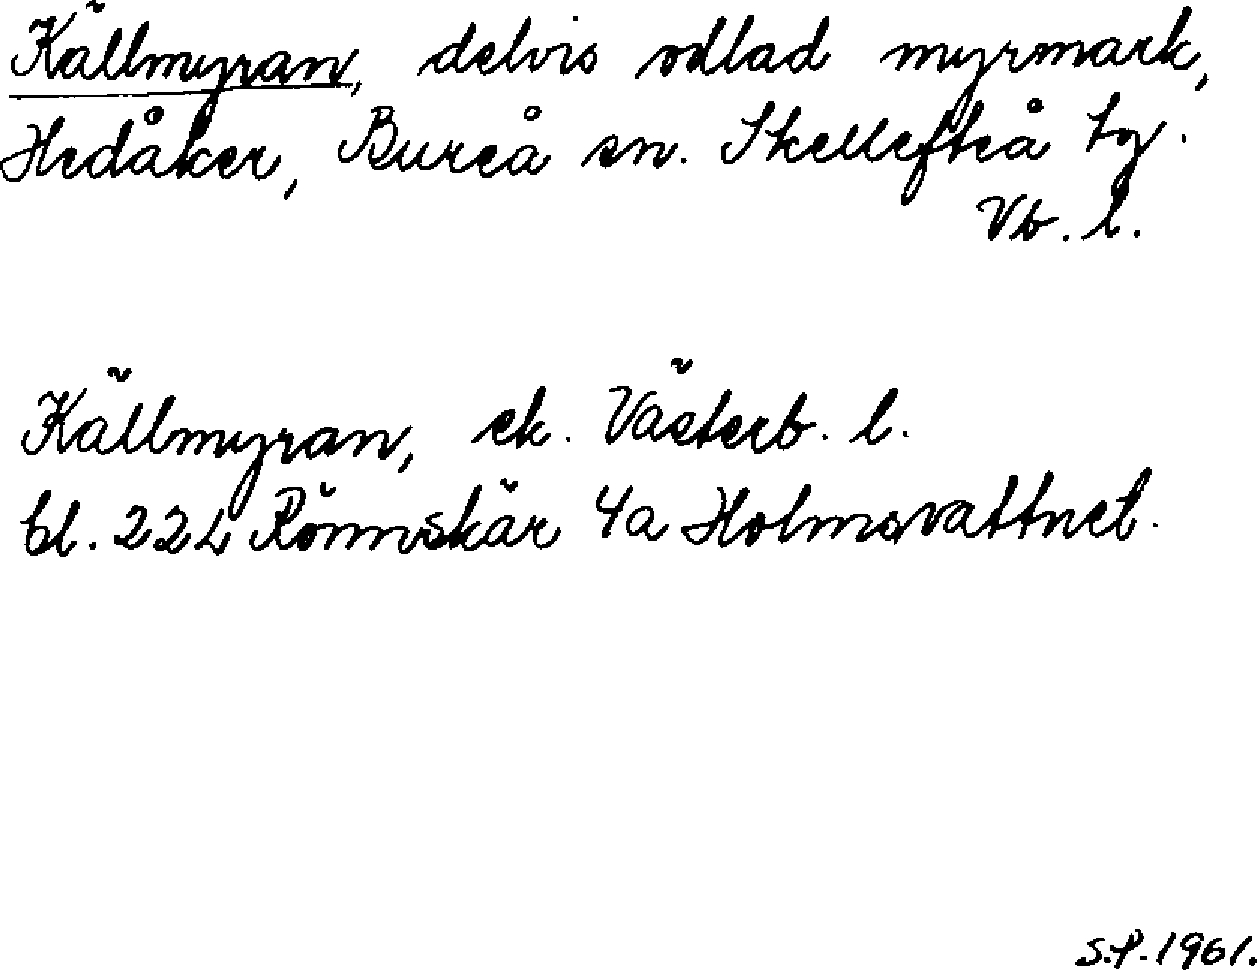 Källmyran, delvis odlad myrmark,
Hedåker, Bureå sn. Skellefteå tg.
Vb. l.
Källmyran, ek. Västerb. l.
bl. 22L Rönnskär 4a Holmsvattnet.
S.P. 1961.